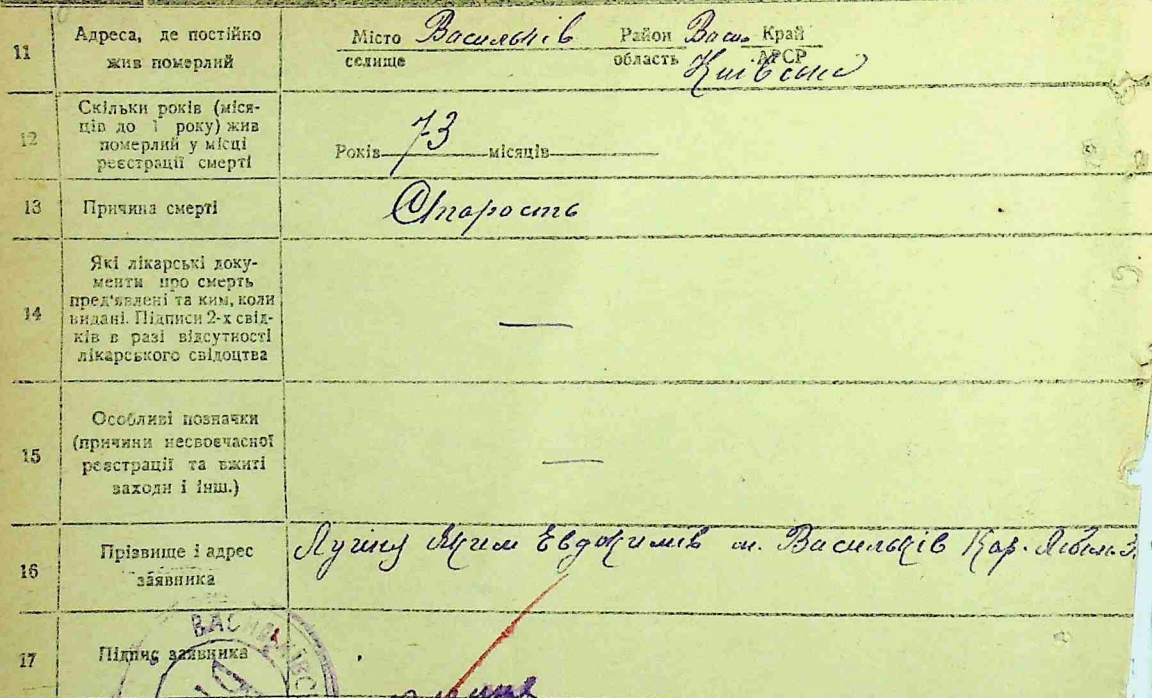 11
Адреса, де постійно
жив померлий
Місто Васильків Район Васи. Край
селище область Київська АРСР
12
Скільки років (міся-
ців до 1 року) жив
померлий у місці
реєстрації смерті
Років 73 місяців
13
Причина смерті
Старость
14
Які лікарські доку-
менти про смерть
пред'явлені та ким, коли
видані. Підписи 2-х свід-
ків в разі відсутності
лікарського свідоцтва
—
15
Особливі позначки
(причини несвоєчасної
реєстрації та вжиті
заходи і інш.)
—
16
Прізвище і адрес
заявника
Яким Евдокимів м. Васильків
17
Підпис заявника